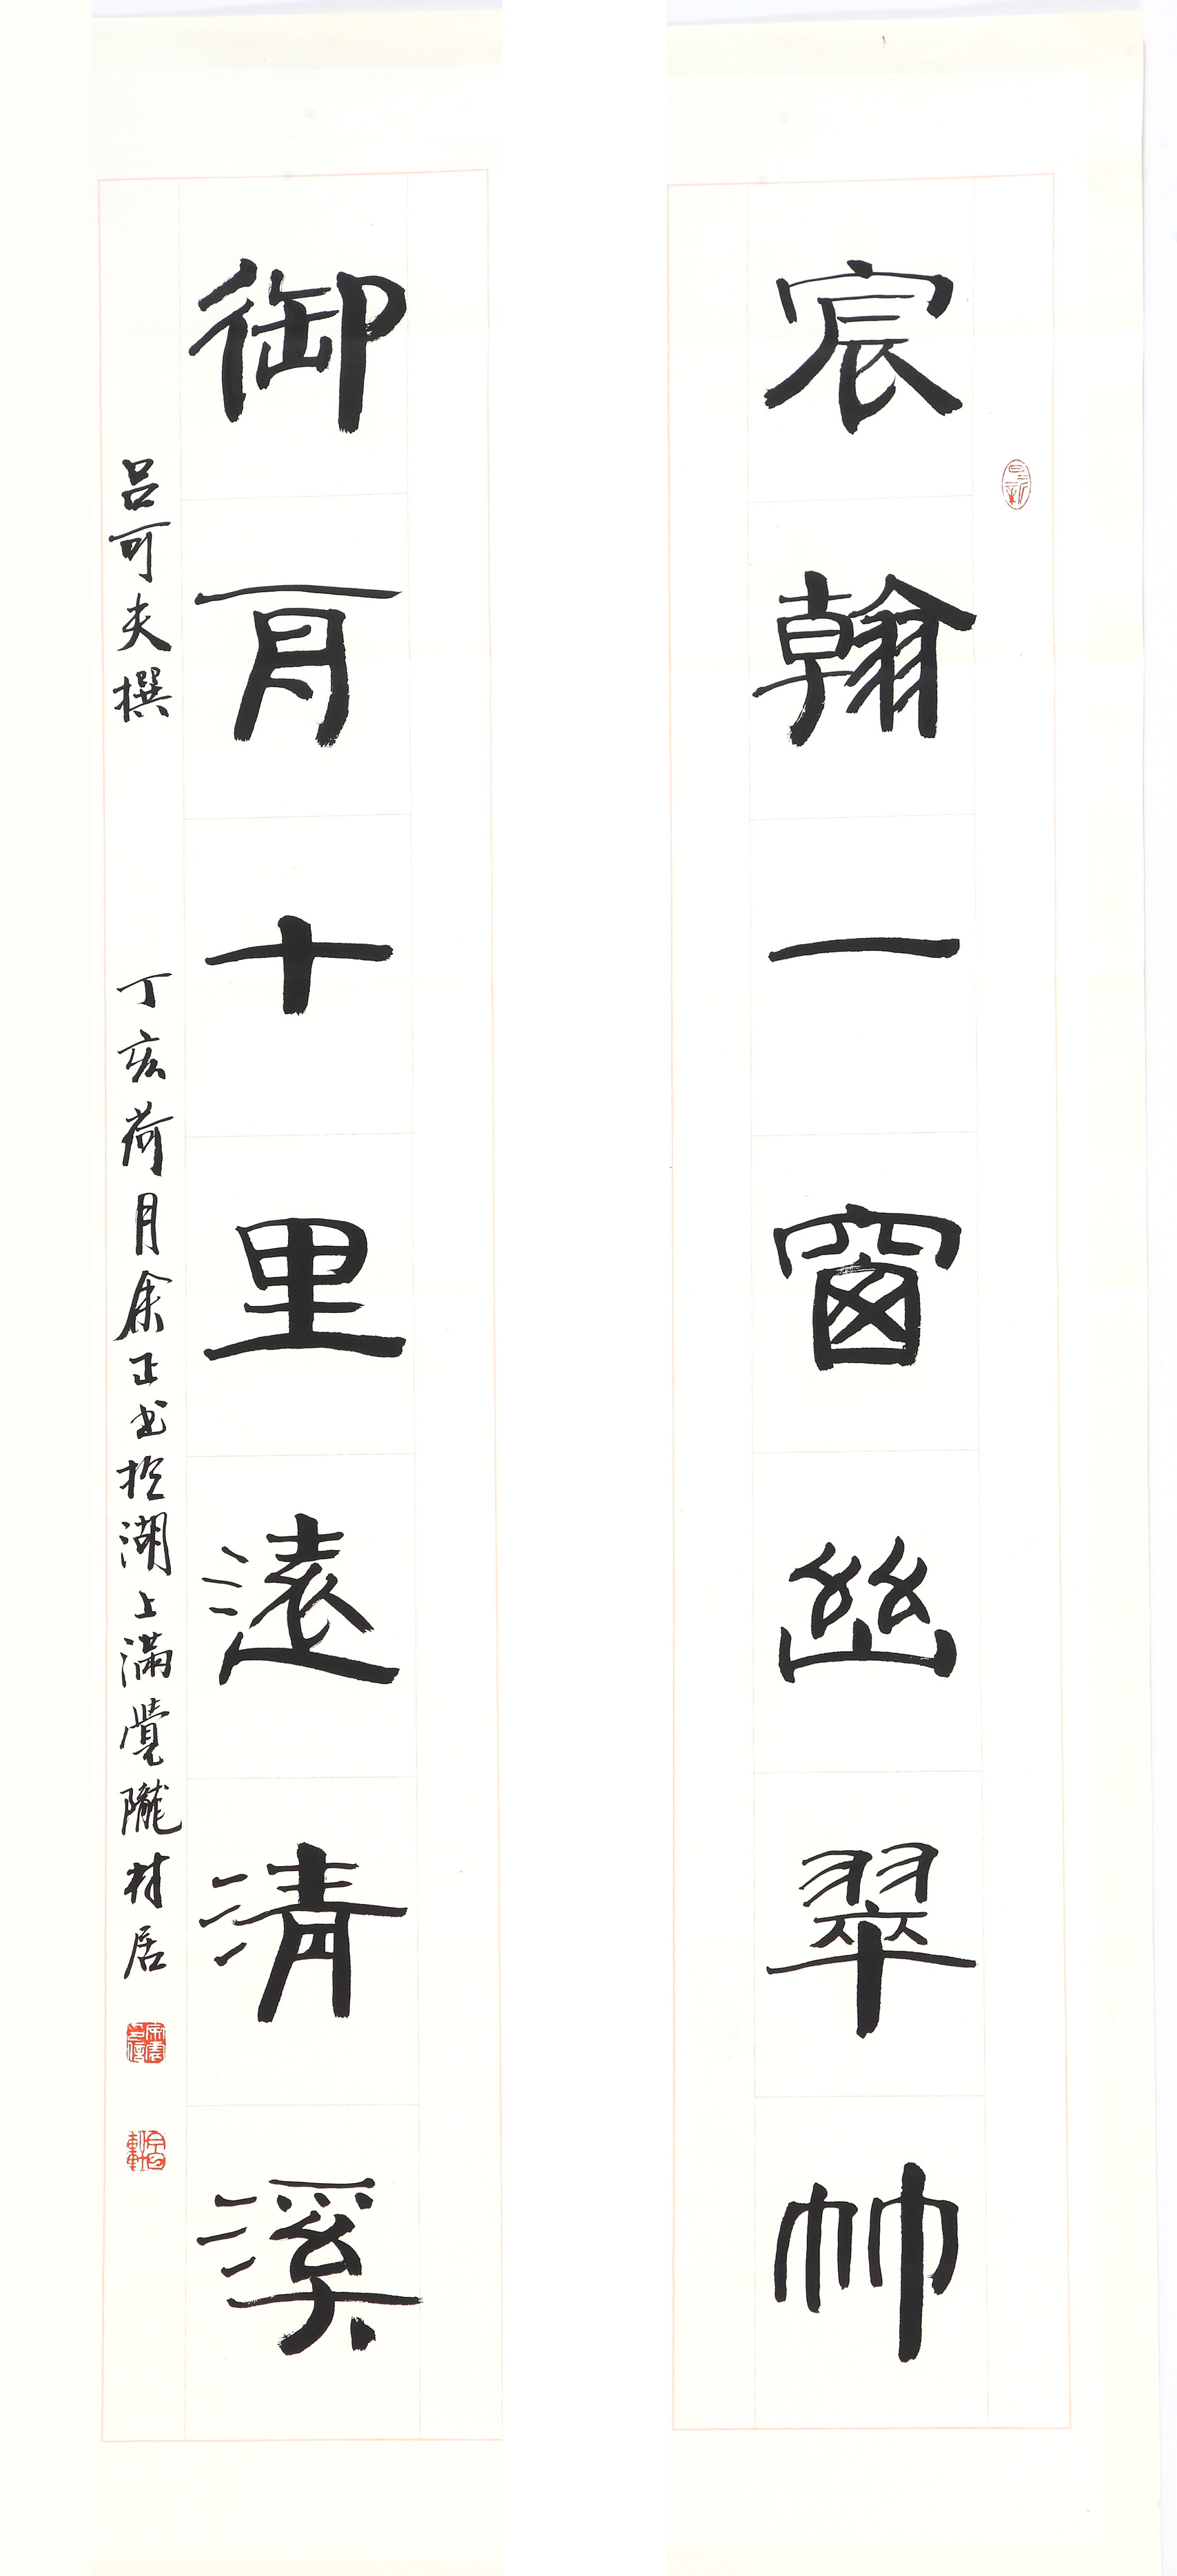 宸翰一窗幽翠竹
御十里遠清溪
呂可夫撰
丁亥荷月余正书於湖上滿覺隴村居
日新